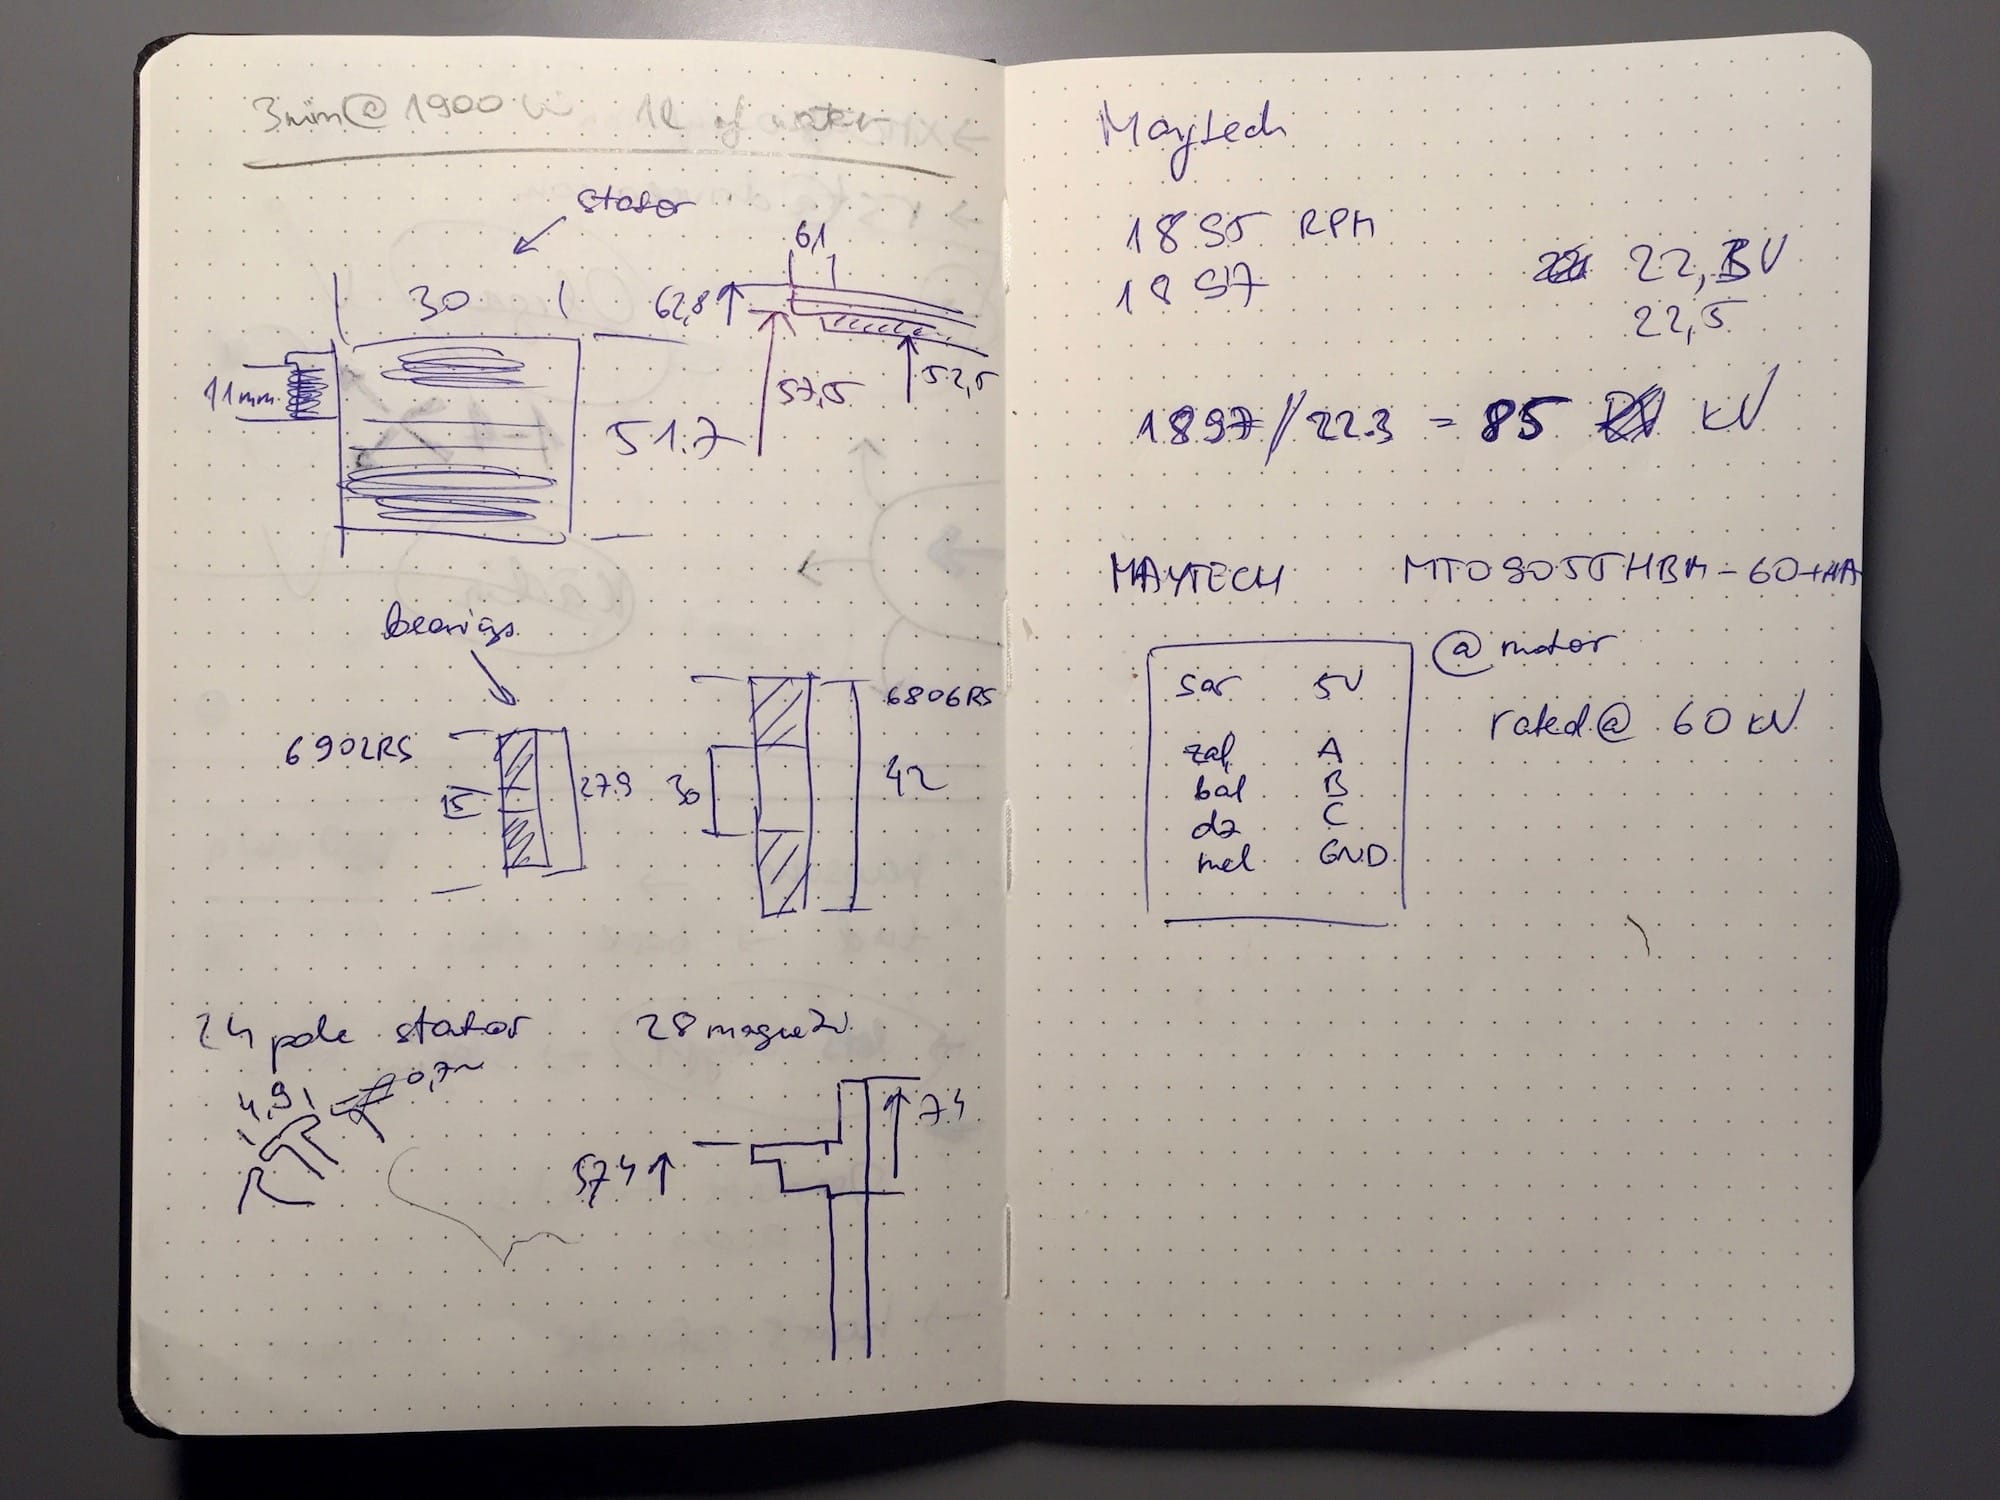 3min@ 1900 W 1l of water
stator
6,1
30
62,8
11mm
57,5
52,5
51.7
bearings
6902RS
15
27.9
6806RS
30
42
24 pole stator 28 magnets
4,9
0,7
57,4
74
Maytech
1895 RPM
1897
22,3V
22,5
1897/22.3 = 85 kV
MAYTECH MTO9055HBM-60-HA
@ motor
sar 5V
zaļ A
bal B
dz C
mel GND
rated@ 60 kV